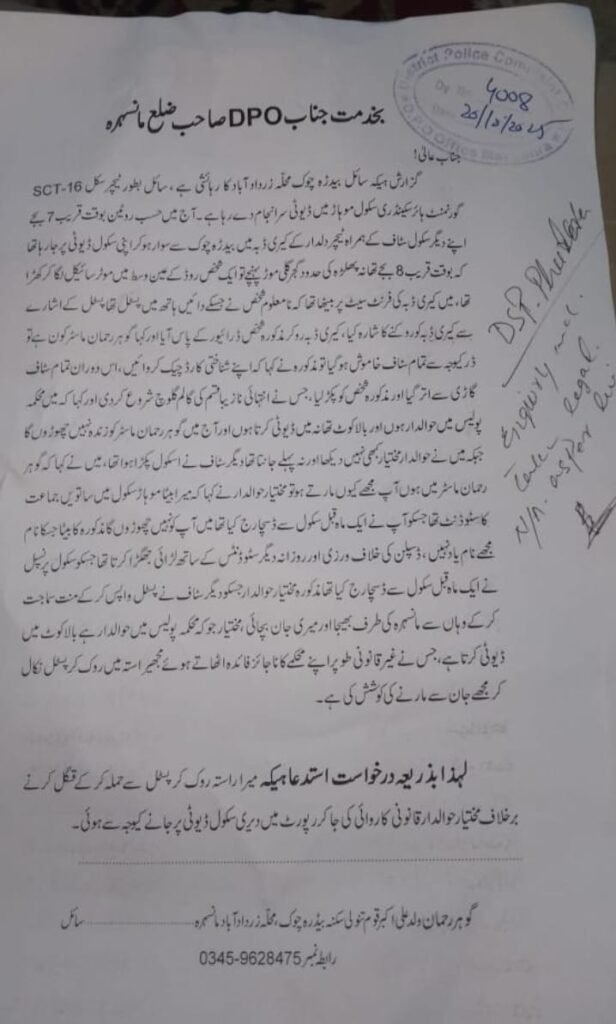 District Police Com
4008
20/10/2025
DPO Office Mansehra
بخدمت جناب DPO صاحب ضلع مانسہرہ
جناب عالی!
گزارش ہیکہ سائل بیدڑہ چوک محلہ زرداد آباد کا رہائشی ہے، سائل بطور ٹیچر سکیل SCT-16
گورنمنٹ ہائر سیکنڈری سکول موہاڑ میں ڈیوٹی سرانجام دے رہا ہے۔ آج میں حسب روٹین بوقت قریب 7 بجے
اپنے دیگر سکول سٹاف کے ہمراہ ٹیچر دلدار کے کیری ڈبہ میں بیدڑہ چوک سے سوار ہو کر اپنی سکول ڈیوٹی پر جا رہا تھا
کہ بوقت قریب 8 بجے تھانہ پھلڑہ کی حدود گجر گلی موڑ پہنچے تو ایک شخص روڈ کے عین وسط میں موٹر سائیکل لگا کر کھڑا
تھا، میں کیری ڈبہ کی فرنٹ سیٹ پر بیٹھا تھا کہ نامعلوم شخص نے جسکے دائیں ہاتھ میں پسٹل تھا پسٹل کے اشارے
سے کیری ڈبہ کو روکنے کا اشارہ کیا، کیری ڈبہ روکر مذکورہ شخص ڈرائیور کے پاس آیا اور کہا گوہر رحمان ماسٹر کون ہے تو
ڈر کیوجہ سے تمام سٹاف خاموش ہو گیا تو مذکورہ نے کہا کہ اپنے شناختی کارڈ چیک کروائیں، اس دوران تمام سٹاف
گاڑی سے اتر گیا اور مذکورہ شخص کو پکڑ لیا، جس نے انتہائی نازیبا قسم کی گالم گلوچ شروع کر دی اور کہا کہ میں محکمہ
پولیس میں حوالدار ہوں اور بالاکوٹ تھانہ میں ڈیوٹی کرتا ہوں اور آج میں گوہر رحمان ماسٹر کو زندہ نہیں چھوڑوں گا
جبکہ میں نے حوالدار مختیار کبھی نہیں دیکھا اور نہ پہلے جانتا تھا دیگر سٹاف نے اسکول پکڑا ہوا تھا، میں نے کہا کہ گوہر
رحمان ماسٹر میں ہوں آپ مجھے کیوں مارتے ہو تو مختیار حوالدار نے کہا کہ میرا بیٹا موہاڑ سکول میں ساتویں جماعت
کا سٹوڈنٹ تھا جسکو آپ نے ایک ماہ قبل سکول سے ڈسچارج کیا تھا میں آپ کو نہیں چھوڑوں گا مذکورہ کا بیٹا جسکا نام
مجھے نام یاد نہیں، ڈسپلن کی خلاف ورزی اور روزانہ دیگر سٹوڈنٹس کے ساتھ لڑائی جھگڑا کرتا تھا جسکو سکول پرنسپل
نے ایک ماہ قبل سکول سے ڈسچارج کیا تھا مذکورہ مختیار حوالدار جسکو دیگر سٹاف نے پسٹل واپس کر کے منت سماجت
کر کے وہاں سے مانسہرہ کی طرف بھیجا اور میری جان بچائی، مختیار جو کہ محکمہ پولیس میں حوالدار ہے بالاکوٹ میں
ڈیوٹی کرتا ہے، جس نے غیر قانونی طور پر اپنے محکمے کا ناجائز فائدہ اٹھاتے ہوئے مجھے راستہ میں روک کر پسٹل نکال
کر مجھے جان سے مارنے کی کوشش کی ہے۔
لہذا بذریعہ درخواست استدعا ہیکہ میرا راستہ روک کر پسٹل سے حملہ کر کے قتل کرنے
برخلاف مختیار حوالدار قانونی کاروائی کی جا کر رپورٹ میں دیری سکول ڈیوٹی پر جانے کیوجہ سے ہوئی۔
گوہر رحمان ولد علی اکبر قوم تنولی سکنہ بیڈرہ چوک، محلہ زرداد آباد مانسہرہ ........ سائل
رابطہ نمبر 0345-9628475
DSP. Phulara
Enquiry
legal
N/A. as per